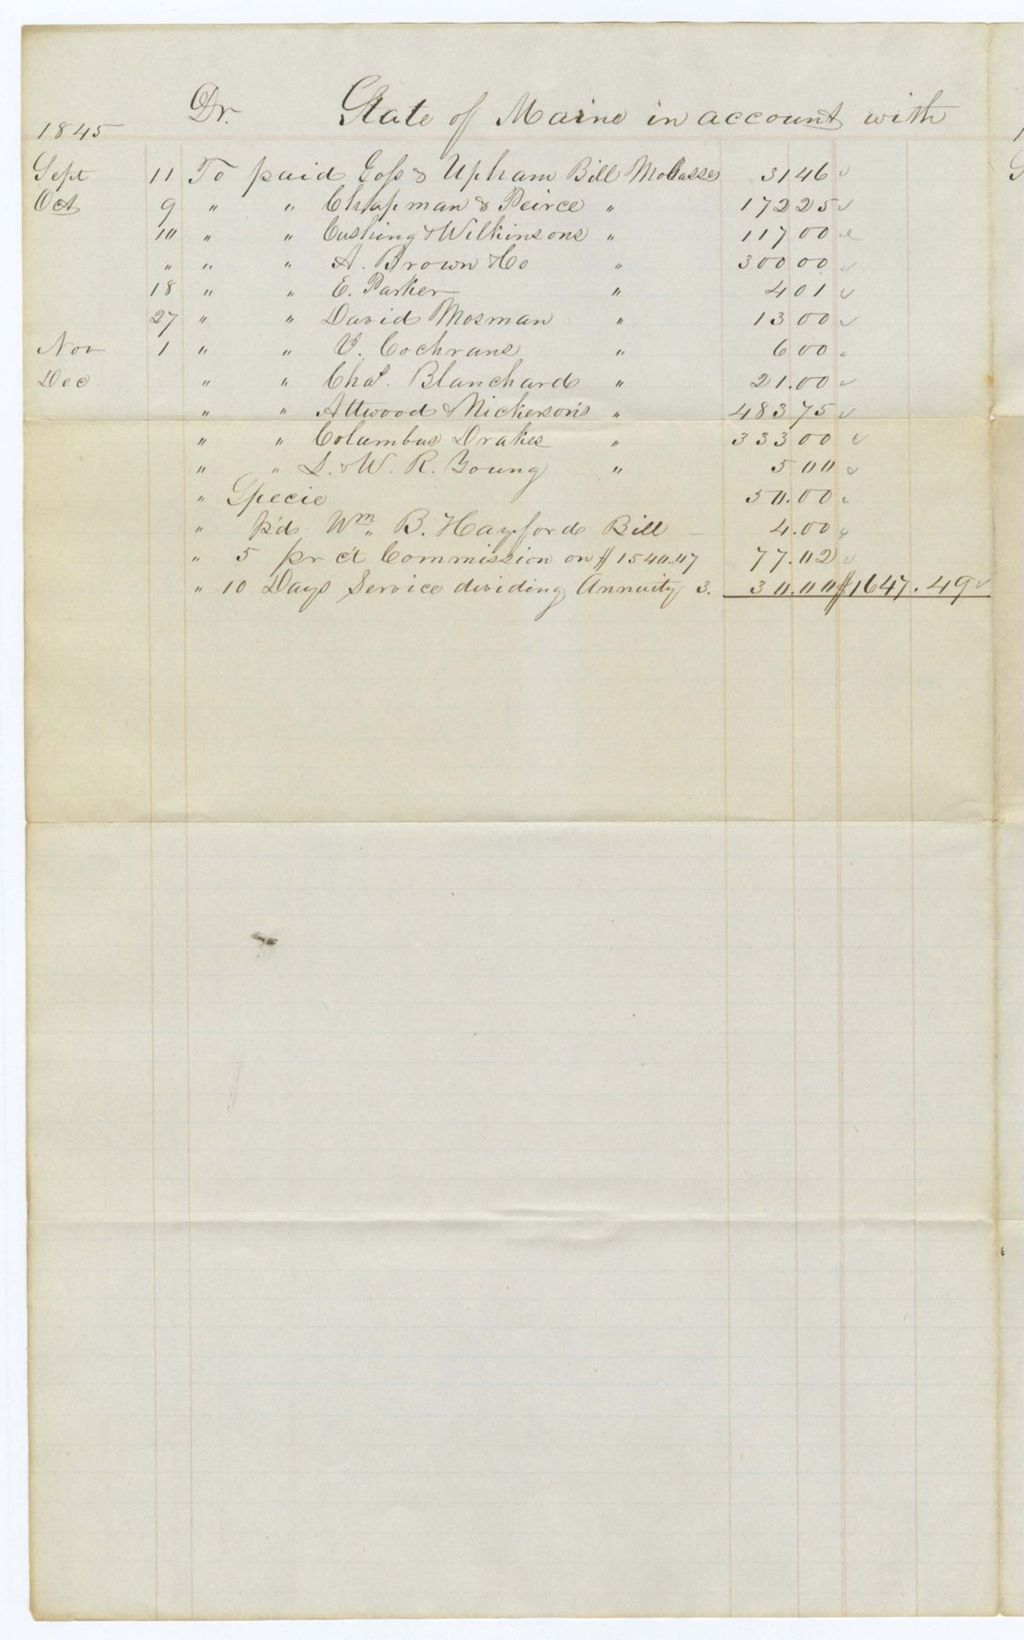 Dr. State of Maine in account with
1845
Sept 11 To paid Goss & Upham Bill Molasses 31 46
Oct 9 " " Chapman & Peirce " 172 25
10 " " Cushing & Wilkinsons " 117 00
" " " A. Brown & Co " 300 00
18 " " E. Parker " 4 01
27 " " David Mosman " 13 00
Nov 1 " " Cochrans " 6 00
Dec " " Chas. Blanchard " 21.00
" " Attwood & Nickerson's " 483 75
" " Columbus Drakes " 333 00
" " & W. R. Young " 5 00
" Specie 50.00
" p'd Wm B. Hayford Bill 4.00
" 5 pr ct Commission on $1540.47 77.02
" 10 Days Service dividing Annuity 3. 30.00 $1647.49